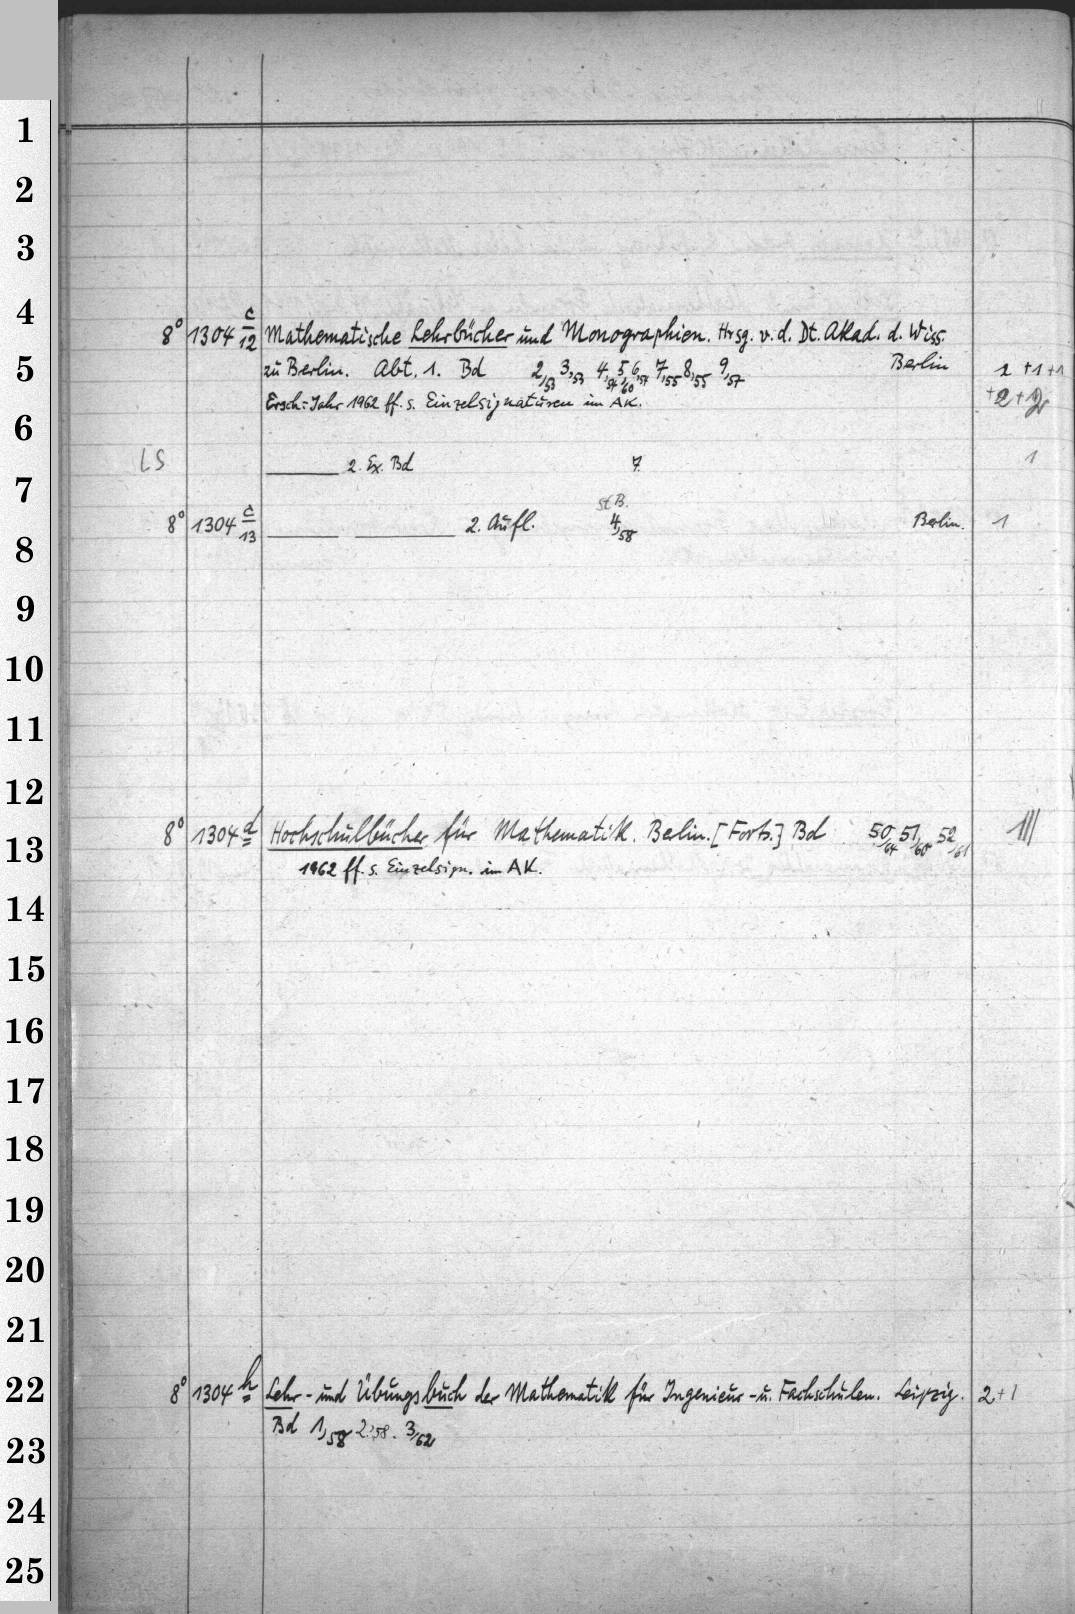 1
2
3
4
8° 1304 c/12 Mathematische Lehrbücher und Monographien. Hrsg. v. d. Dt. Akad. d. Wiss.
5 zu Berlin. Abt. 1. Bd 2,53 3,53 4,54 5,60 6,54 7,55 8,55 9,57 Berlin 1 +1 +1
Ersch.-Jahr 1962 ff. s. Einzelsignaturen im AK. +2+
6
LS ______ 2. Ex. Bd 7 1
7
St B.
8° 1304 c/13 ______ ______ 2. Aufl. 4,58 Berlin. 1
8
9
10
11
12
8° 1304 d Hochschulbücher für Mathematik. Berlin. [Forts.] Bd 50,64 51,60 52,61 III
13
1962 ff. s. Einzelsign. im AK.
14
15
16
17
18
19
20
21
22 8° 1304 h Lehr- und Übungsbuch der Mathematik für Ingenieur- u. Fachschulen. Leipzig. 2+1
Bd 1,58 2,58. 3,62
23
24
25